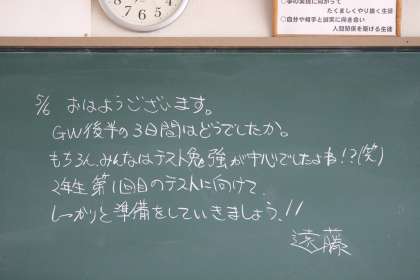 8 7 6 5 4
○夢の実現に向かって
たくましくやり抜く生徒
○自分や相手と誠実に向き合い
人間関係を築ける生徒
5/6 おはようございます。
GW後半の3日間はどうでしたか。
もちろん、みんなはテスト勉強が中心でしたよね!?(笑)
2年生第1回目のテストに向けて、
しっかりと準備をしていきましょう!!
遠藤